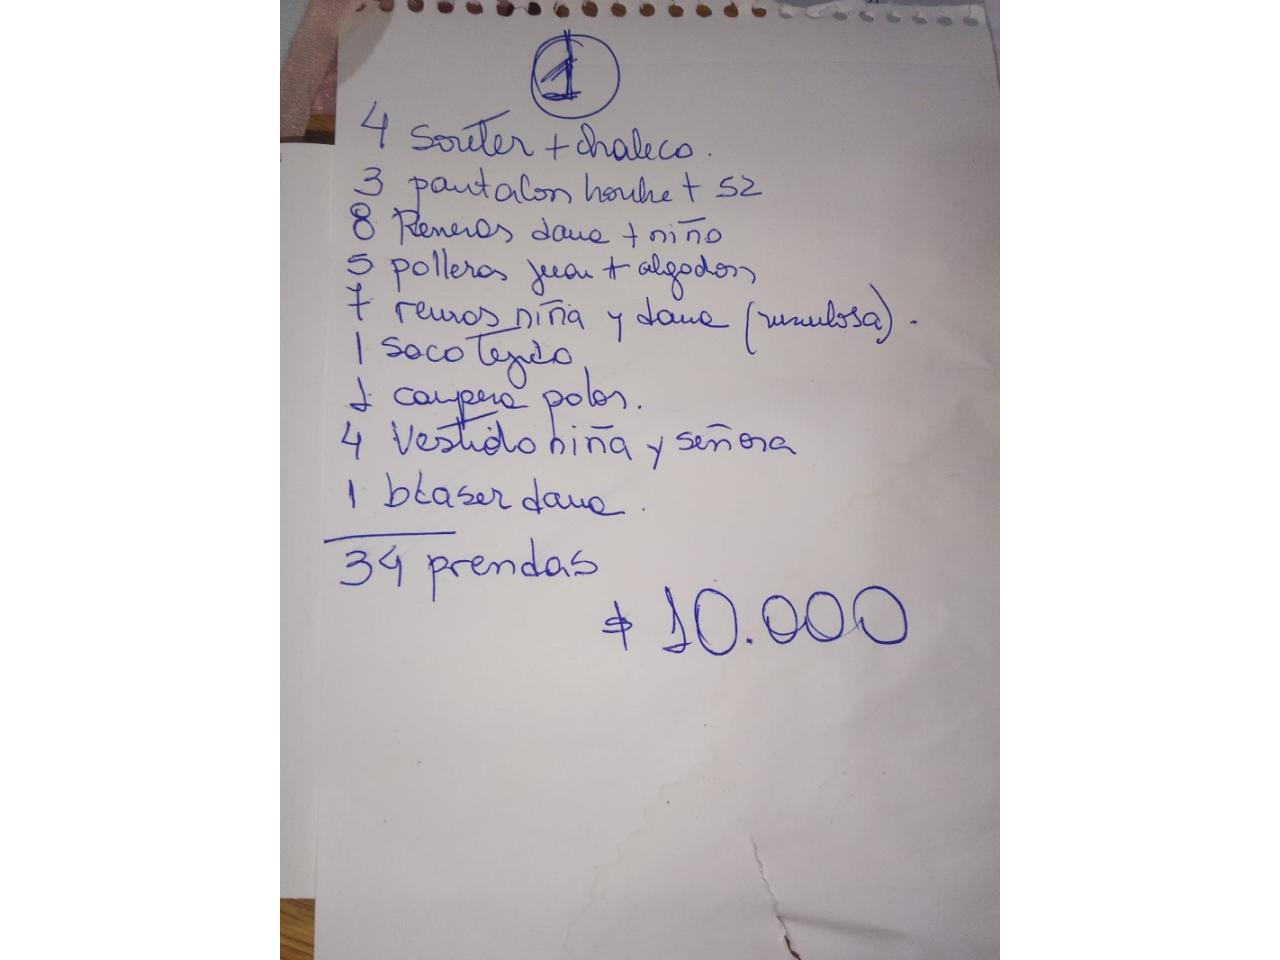 1
4 Soueter + chaleco.
3 pantalon hombre + 52
8 Remeras dama + niño
5 polleras jean + algodon
7 remeras niña y dama (musculosa).
1 saco Tejido
1 campera polar.
4 Vestido niña y señora
1 blaser dama.
34 prendas
$ 10.000